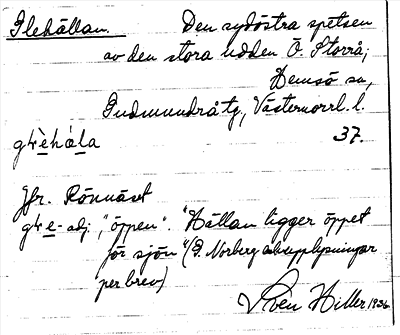 Glehällan. Den sydöstra spetsen
av den stora udden Ö. Storrå;
Hemsö sn,
Gudmundrå tg, Västernorrl. l.
37.
Jfr. Rönnäset
adj, "öppen". "Hällan ligger öppet
för sjön" (P. Norberg
per brev)
Sven Hiller 1936